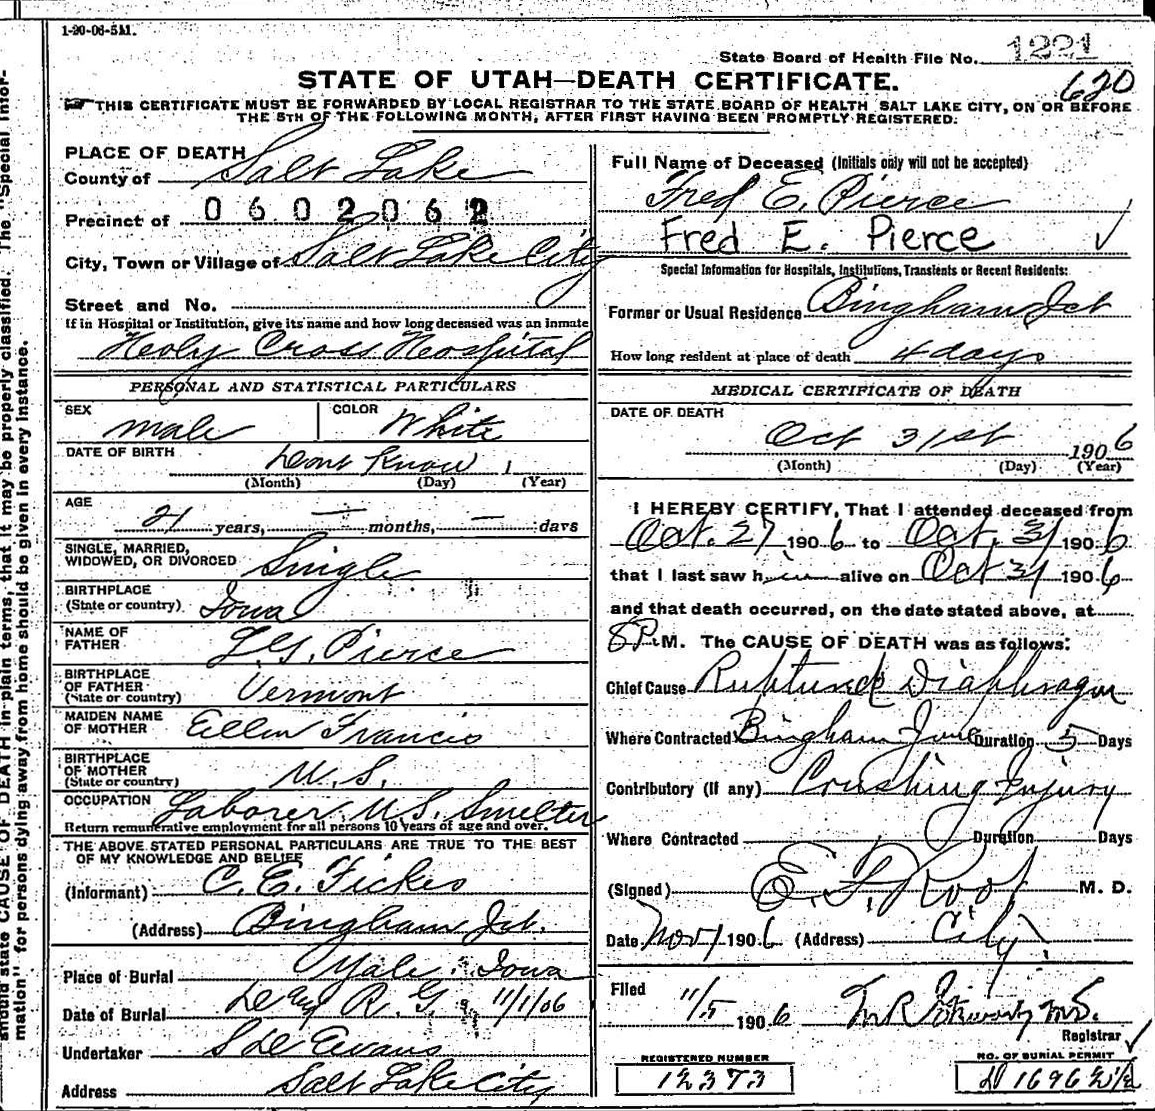 1-20-06-5M.
State Board of Health File No. 1221
STATE OF UTAH—DEATH CERTIFICATE. 620
THIS CERTIFICATE MUST BE FORWARDED BY LOCAL REGISTRAR TO THE STATE BOARD OF HEALTH, SALT LAKE CITY, ON OR BEFORE
THE 5TH OF THE FOLLOWING MONTH, AFTER FIRST HAVING BEEN PROMPTLY REGISTERED.
PLACE OF DEATH
County of Salt Lake
Precinct of 0602062
City, Town or Village of Salt Lake City
Street and No.
If in Hospital or Institution, give its name and how long deceased was an inmate
Holy Cross Hospital
PERSONAL AND STATISTICAL PARTICULARS
SEX male COLOR White
DATE OF BIRTH Dont Know
(Month) (Day) (Year)
AGE
21 years, — months, — days
SINGLE, MARRIED,
WIDOWED, OR DIVORCED Single
BIRTHPLACE
(State or country) Iowa
NAME OF
FATHER L. G. Pierce
BIRTHPLACE
OF FATHER
(State or country) Vermont
MAIDEN NAME
OF MOTHER Ellen Francis
BIRTHPLACE
OF MOTHER
(State or country) U.S.
OCCUPATION Laborer U.S. Smelter
Return remunerative employment for all persons 10 years of age and over.
THE ABOVE STATED PERSONAL PARTICULARS ARE TRUE TO THE BEST
OF MY KNOWLEDGE AND BELIEF
(Informant) C. E. Fickes
(Address) Bingham Jct.
Place of Burial Yale Iowa
Date of Burial R. G. 11/1/06
Undertaker S D Evans
Address Salt Lake City
Full Name of Deceased (Initials only will not be accepted)
Fred E. Pierce
Fred E. Pierce
Special Information for Hospitals, Institutions, Transients or Recent Residents:
Former or Usual Residence Bingham Jct
How long resident at place of death 4 days
MEDICAL CERTIFICATE OF DEATH
DATE OF DEATH
Oct 31st 1906
(Month) (Day) (Year)
I HEREBY CERTIFY, That I attended deceased from
Oct. 27 1906 to Oct. 31 1906
that I last saw him alive on Oct 31 1906
and that death occurred, on the date stated above, at
8 P. M. The CAUSE OF DEATH was as follows:
Chief Cause Ruptured Diaphragm
Where Contracted Bingham Junc Duration 5 Days
Contributory (if any) Crushing Injury
Where Contracted Duration Days
(Signed) E. F. Root M. D.
Date Nov 1 1906 (Address) City
Filed 11/5 1906
Registrar
REGISTERED NUMBER
12373
NO. OF BURIAL PERMIT
should state CAUSE OF DEATH in plain terms, that it may be properly classified. The "Special Infor-
mation" for persons dying away from home should be given in every instance.